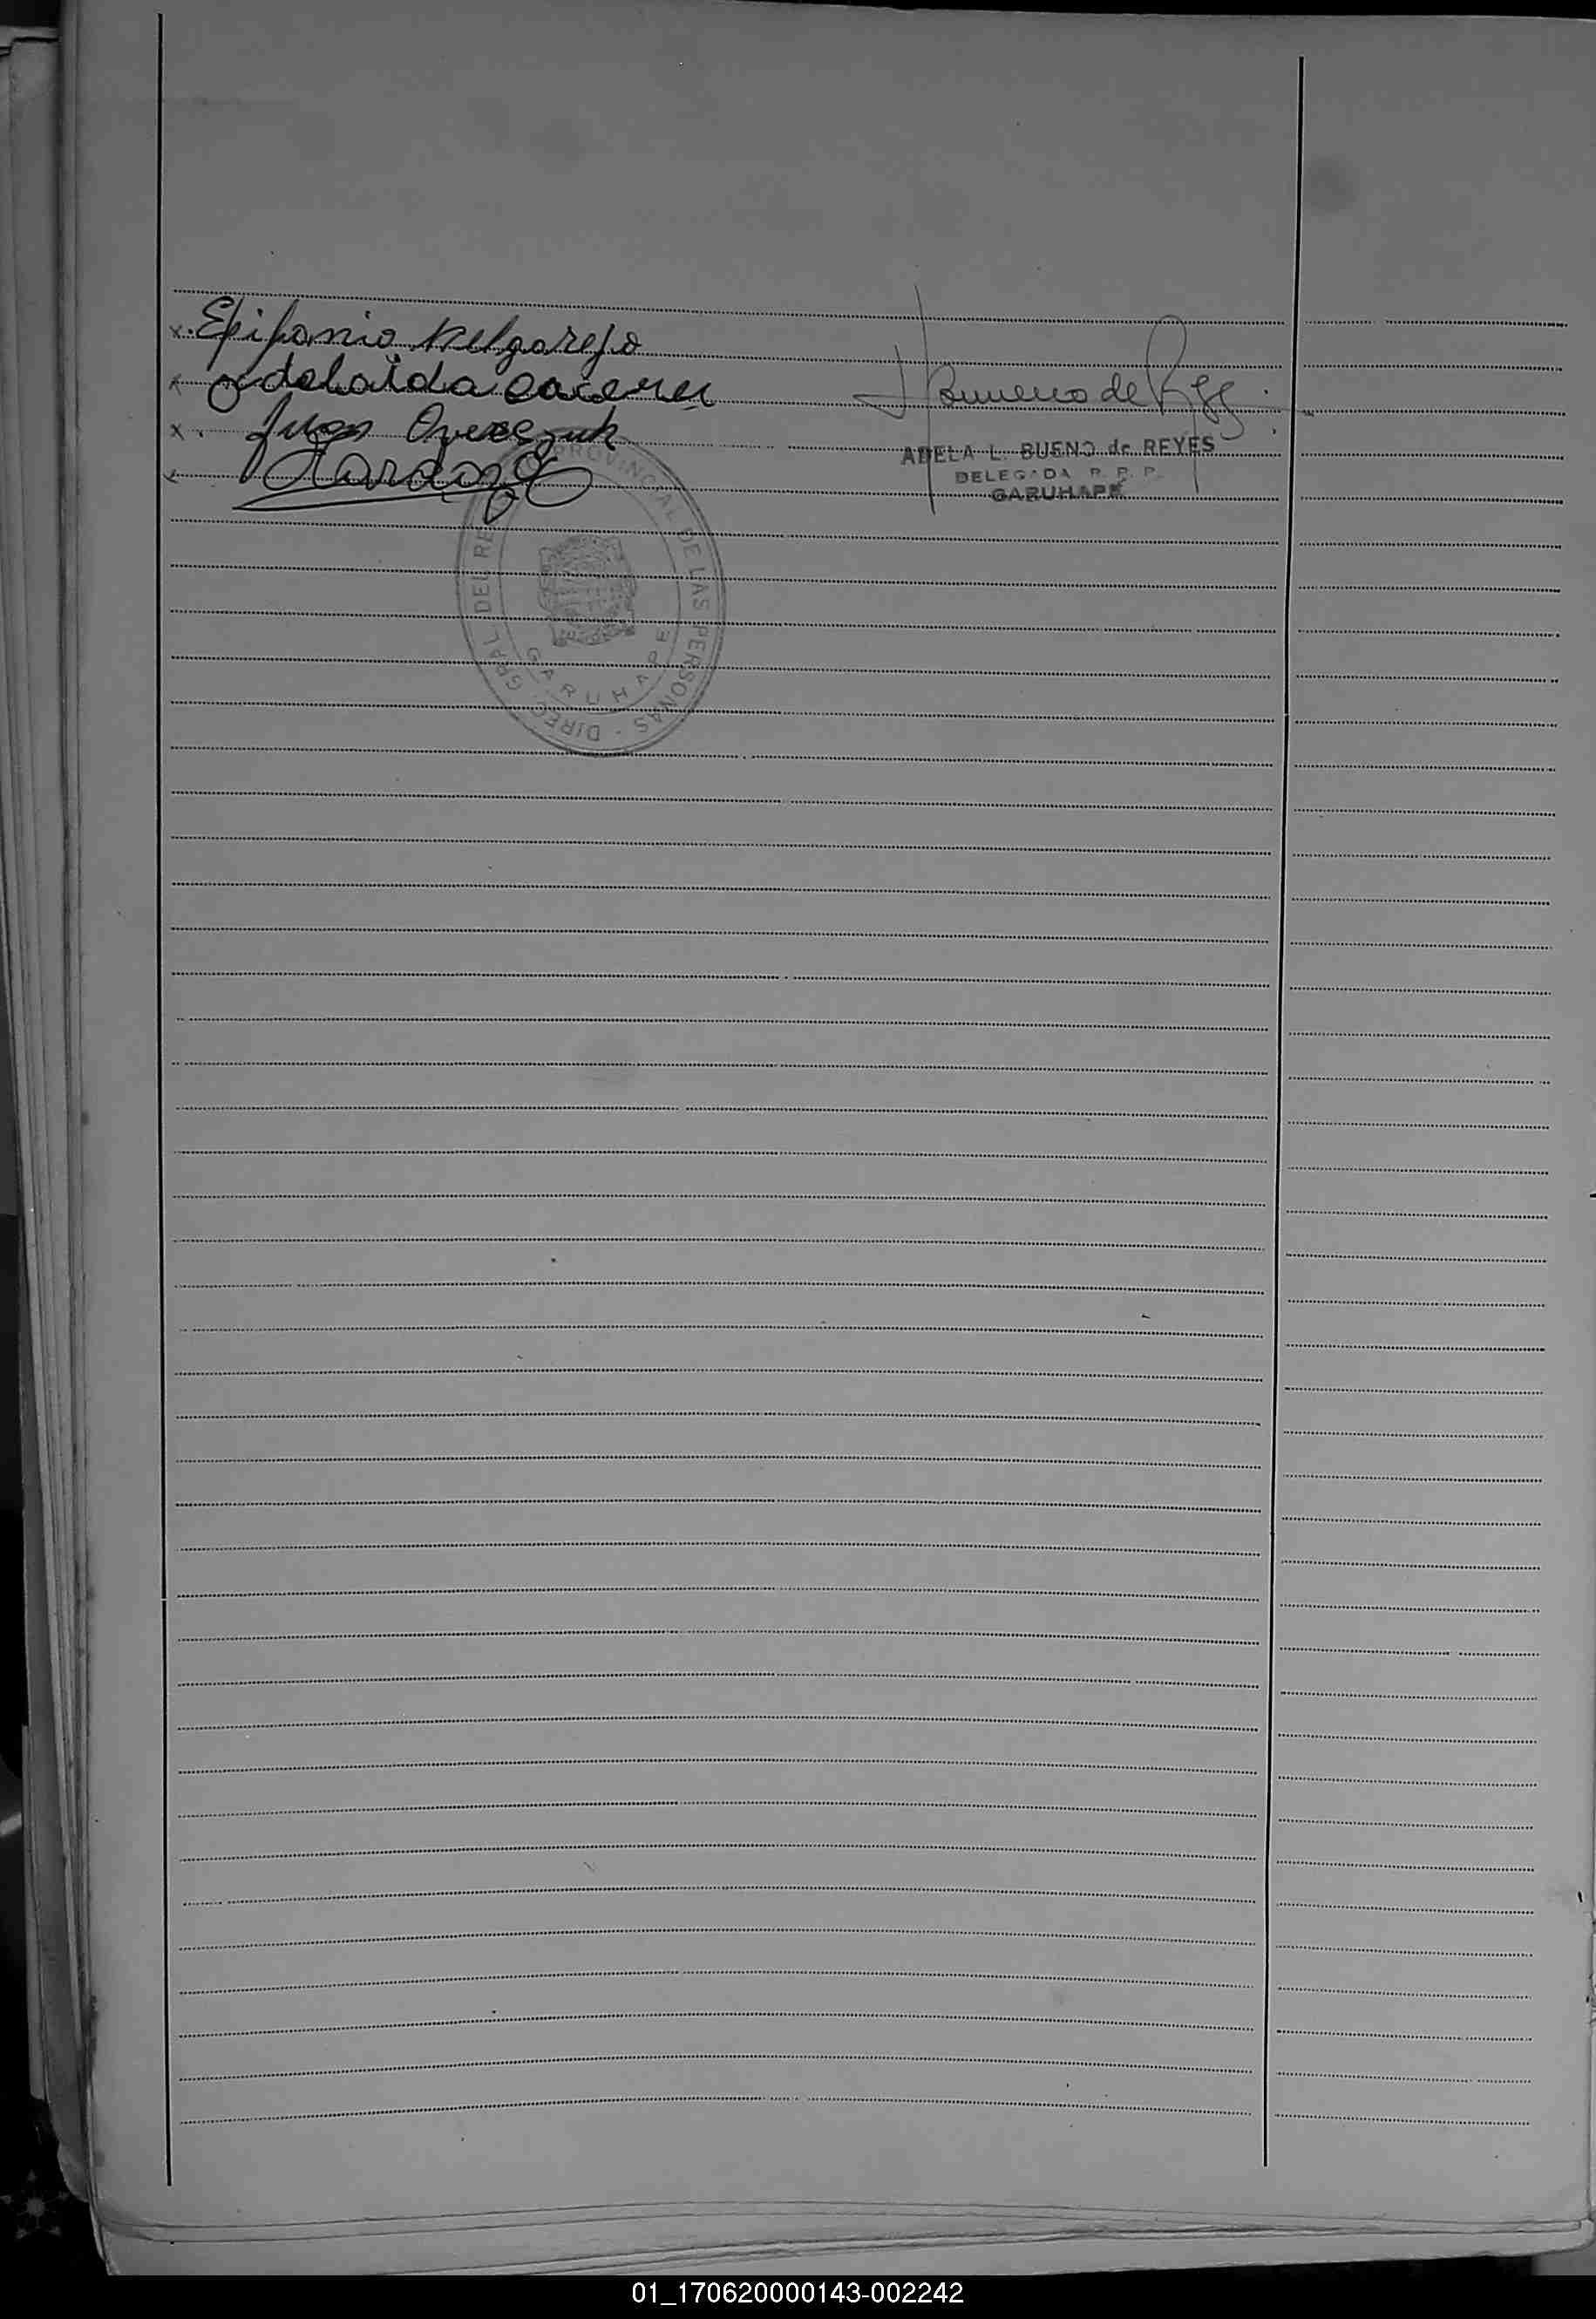 x. Epifanio Melgarejo
x Adelaida Caceres
x. Juan
x Cardozo
Bueno de Reyes
ADELA L. BUENO de REYES
DELEGADA R. P. P.
GARUHAPÉ
DIREC. GRAL. DEL RE PROVINCIAL DE LAS PERSONAS -
GARUHAPE
01_170620000143-002242